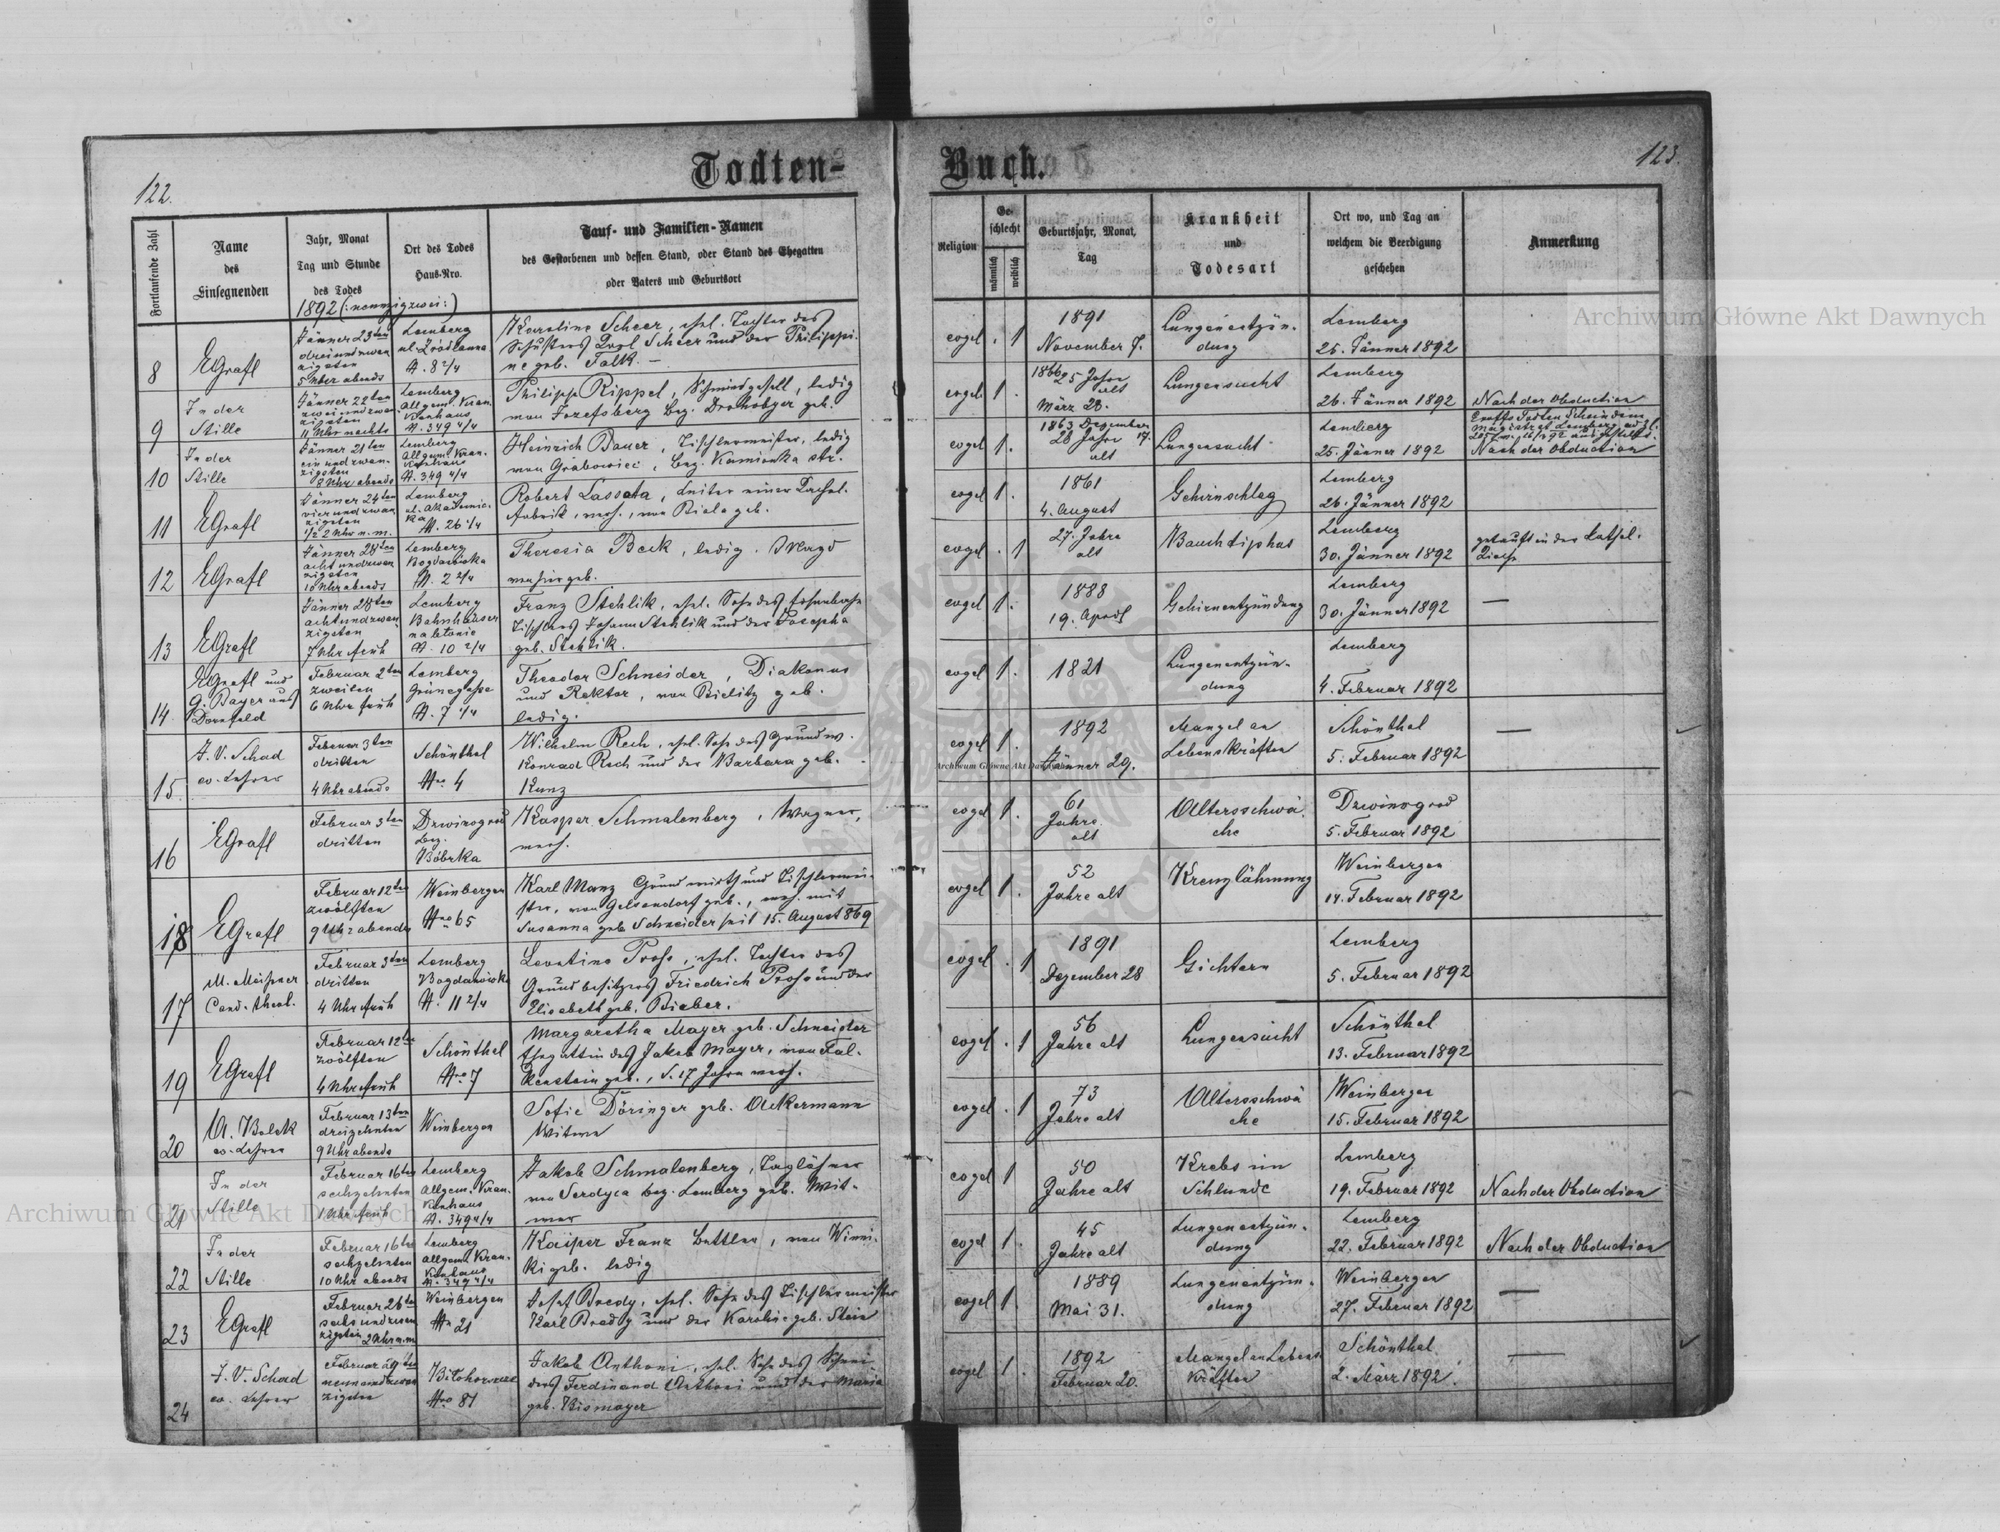 Todten-
Buch.
122.
123.
Fortlaufende Zahl
Name
des
Einsegnenden
Jahr, Monat
Tag und Stunde
des Todes
Ort des Todes
Haus-Nro.
Tauf- und Familien-Namen
des Gestorbenen und dessen Stand, oder Stand des Ehegatten
oder Vaters und Geburtsort
Religion
Ge-
schlecht
männlich
weiblich
Geburtsjahr, Monat,
Tag
Krankheit
und
Todesart
Ort wo, und Tag an
welchem die Beerdigung
geschehen
Anmerkung
1892 (:neunzigzwei:)
8
EGrafl
Jänner 23ten
dreiundzwan
zigsten
5 Uhr abends
Lemberg
N. 8 2/4
Karoline Scheer, ehel. Tochter des
Schusters Karl Scheer und der Philippi.
ne geb. Falk. —
evgel . 1
1891
November 7.
Lungenentzün-
dung
Lemberg
25. Jänner 1892
9
In der
Stille
Jänner 22ten
zweiundzwan
zigsten
11 Uhr nachts
Lemberg
Allgem. Kran.
kenhaus
N. 349 4/4
Philipp Rippel, Schmiedgesell, ledig
von Josefsberg Bez. Drohobycz geb.
evgel. 1 .
1866 25 Jahre
alt
März 28.
Lungensucht
Lemberg
26. Jänner 1892
Nach der Obduction
10
In der
Stille
Jänner 21ten
einundzwan-
zigsten
8 Uhr abends
Lemberg
Allgem. Kran.
kenhaus
N. 349 4/4
Heinrich Bauer, Tischlermeister, ledig
von Grabowiec, Bez. Kamionka str.
evgel 1 .
1863 Dezember
28 Jahre 17.
alt
Lungensucht
Lemberg
25. Jänner 1892
Magistrat Lemberg
Nach der Obduction
11
EGrafl
Jänner 24ten
vierundzwan
zigsten
1/2 2 Uhr n. m.
Lemberg
ul. Akademic.
ka
N. 26 1/4
Robert Lassota, Leiter einer Kachel.
fabrik, verh., von Biala geb.
evgel 1 .
1861
4. August
Gehirnschlag
Lemberg
26. Jänner 1892
12
EGrafl
Jänner 28ten
achtundzwan
zigsten
10 Uhr abends
Lemberg
Bogdanówka
N. 2 2/4
Theresia Beck, ledig. Magd
von hier geb.
evgel . 1
27. Jahre
alt
Bauchtiphus
Lemberg
30. Jänner 1892
getauft in der kathol.
Kirche
13
EGrafl
Jänner 28ten
achtundzwan
zigsten
7 Uhr früh
Lemberg
Bahnhäuser
N. 10 2/4
Franz Stehlik, ehel. Sohn des Eisenbahn
Tischlers Johann Stehlik und der Josepha
geb. Stehlik.
evgel 1 .
1888
19. April
Gehirnentzündung
Lemberg
30. Jänner 1892
—
14.
EGrafl und
G. Bayer aus
Dornfeld
Februar 2ten
zweiten
6 Uhr früh
Lemberg
Grünegasse
N. 7 1/4
Theodor Schneider, Diakonus
und Rektor, von Bielitz geb.
ledig.
evgel 1 .
1821
Lungenentzün-
dung
Lemberg
4. Februar 1892
15.
J. V. Schad
ev. Lehrer
Februar 3ten
dritten
4 Uhr abends
Schönthal
Nro 4
Wilhelm Rech, ehel. Sohn des Grundw.
Konrad Rech und der Barbara geb.
Kunz
evgel 1 .
1892
Jänner 29.
Mangel an
Lebenskräften
Schönthal
5. Februar 1892
—
16
EGrafl
Februar 3ten
dritten
Dzwinogrod
Bez.
Bóbrka
Kaspar Schmalenberg, Wagner,
verh.
evgel 1 .
61
Jahre
alt
Altersschwä.
che
Dzwinogrod
5. Februar 1892
18
EGrafl
Februar 12ten
zwölften
9 Uhr abends
Weinbergen
Nro 65
Karl Manz Grundwirth und Tischlermei-
ster, von Gelsendorf geb., verh. mit
Susanna geb Schneider seit 15. August 869
evgel 1 .
52
Jahre alt
Kreuzlähmung
Weinbergen
14. Februar 1892
17
M. Meissner
Cand. theol.
Februar 3ten
dritten
4 Uhr früh
Lemberg
Bogdanówka
N. 11 2/4
Leontine Pross, ehel. Tochter des
Grundbesitzers Friedrich Pross und der
Elisabeth geb. Bieber.
evgel . 1
1891
Dezember 28
Gichtern
Lemberg
5. Februar 1892
19
EGrafl
Februar 12ten
zwölften
4 Uhr früh
Schönthal
Nro 7
Margaretha Mayer geb. Schneider
Ehegattin des Jakob Mayer, von Fal.
kenstein geb., s. 17 Jahren verh.
evgel . 1
56
Jahre alt
Lungensucht
Schönthal
13. Februar 1892
20
A. Bolek
ev. Lehrer
Februar 13ten
dreizehnten
9 Uhr abends
Weinbergen
Sofie Döringer geb. Ackermann
Witwe
evgel . 1
73
Jahre alt
Altersschwä
che
Weinbergen
15. Februar 1892
21
In der
Stille
Februar 16ten
sechzehnten
1 Uhr früh
Lemberg
Allgem. Kran.
kenhaus
N. 349 4/4
Jakob Schmalenberg, Taglöhner
von Serdyca bez. Lemberg geb. Wit-
wer
evgel 1
50
Jahre alt
Krebs im
Schlunde
Lemberg
19. Februar 1892
Nach der Obduction
22
In der
Stille
Februar 16ten
sechzehnten
10 Uhr abends
Lemberg
Allgem. Kran.
kenhaus
N. 349 4/4
Kaiper Franz Bettler, von Winni.
ki geb. ledig
evgel 1 .
45
Jahre alt
Lungenentzün.
dung
Lemberg
22. Februar 1892
Nach der Obduction
23
EGrafl
Februar 26ten
sechsundzwan
zigsten 2 Uhr n.m
Weinbergen
Nro 21
Josef Bredy, ehel. Sohn des Tischlermeister
Karl Bredy und der Karoline geb. Stein
evgel 1 .
1889
Mai 31.
Lungenentzün-
dung
Weinbergen
27. Februar 1892
—
24
J. V. Schad
ev. Lehrer
Februar 29ten
neunundzwan
zigsten
Nro 81
Jakob Anthoni, ehel. Sohn des Schnei
ders Ferdinand Anthoni und der Maria
geb. Bismayer
evgel 1 .
1892
Februar 20.
Mangel an Lebens
kräften
Schönthal
2. März 1892.
—
Archiwum Główne Akt Dawnych
Archiwum Główne Akt Dawnych
Archiwum Główne Akt Dawnych